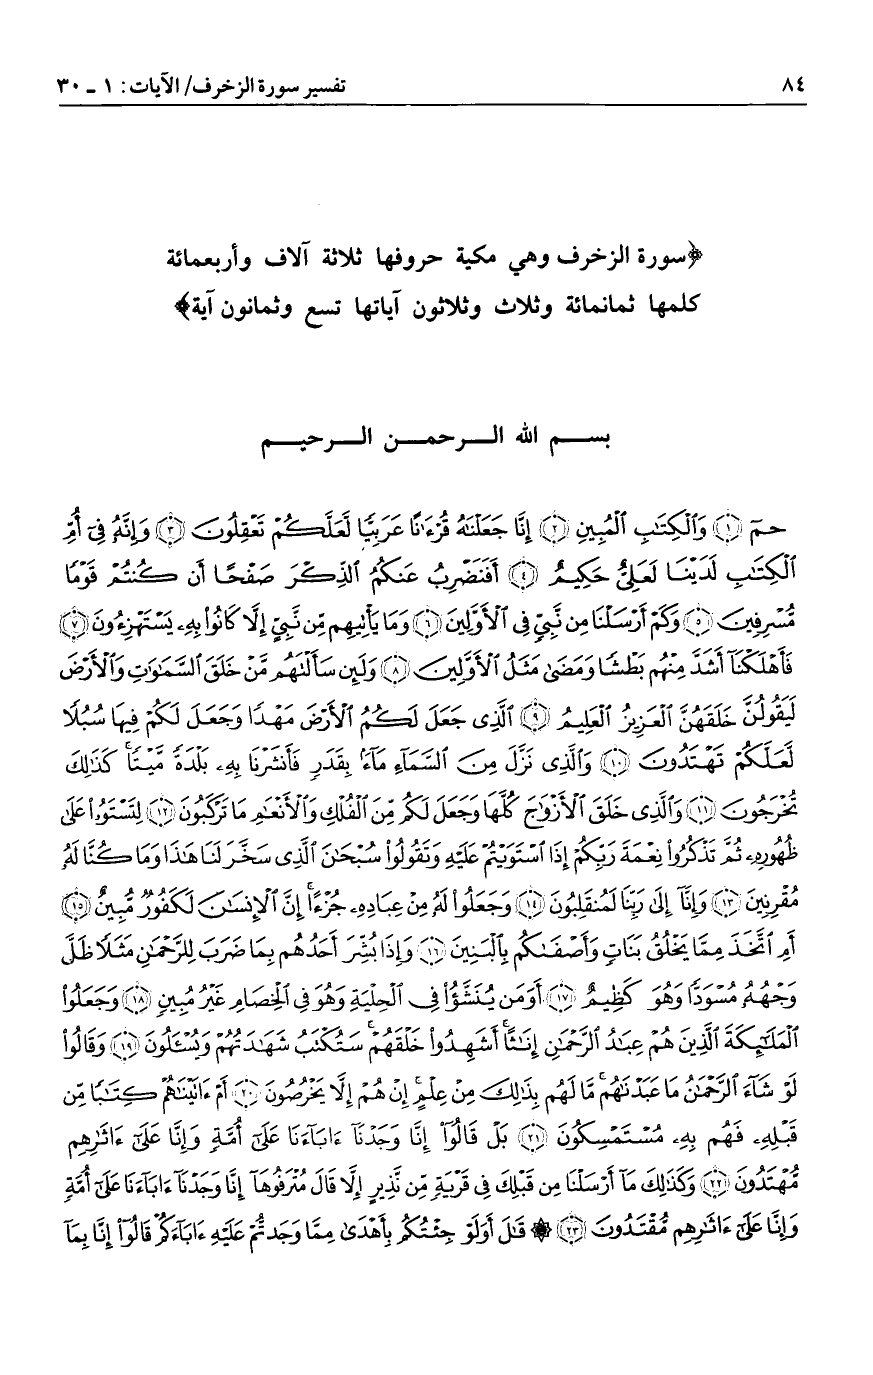 ٨٤ تفسير سورة الزخرف/ الآيات: ١ ـ ٣٠
﴿سورة الزخرف وهي مكية حروفها ثلاثة آلاف وأربعمائة
كلمها ثمانمائة وثلاث وثلاثون آياتها تسع وثمانون آية﴾
بسم الله الرحمن الرحيم
حمٓ ﴿١﴾ وَٱلْكِتَٰبِ ٱلْمُبِينِ ﴿٢﴾ إِنَّا جَعَلْنَٰهُ قُرْءَٰنًا عَرَبِيًّا لَّعَلَّكُمْ تَعْقِلُونَ ﴿٣﴾ وَإِنَّهُۥ فِىٓ أُمِّ
ٱلْكِتَٰبِ لَدَيْنَا لَعَلِىٌّ حَكِيمٌ ﴿٤﴾ أَفَنَضْرِبُ عَنكُمُ ٱلذِّكْرَ صَفْحًا أَن كُنتُمْ قَوْمًا
مُّسْرِفِينَ ﴿٥﴾ وَكَمْ أَرْسَلْنَا مِن نَّبِىٍّ فِى ٱلْأَوَّلِينَ ﴿٦﴾ وَمَا يَأْتِيهِم مِّن نَّبِىٍّ إِلَّا كَانُوا۟ بِهِۦ يَسْتَهْزِءُونَ ﴿٧﴾
فَأَهْلَكْنَآ أَشَدَّ مِنْهُم بَطْشًا وَمَضَىٰ مَثَلُ ٱلْأَوَّلِينَ ﴿٨﴾ وَلَئِن سَأَلْتَهُم مَّنْ خَلَقَ ٱلسَّمَٰوَٰتِ وَٱلْأَرْضَ
لَيَقُولُنَّ خَلَقَهُنَّ ٱلْعَزِيزُ ٱلْعَلِيمُ ﴿٩﴾ ٱلَّذِى جَعَلَ لَكُمُ ٱلْأَرْضَ مَهْدًا وَجَعَلَ لَكُمْ فِيهَا سُبُلًا
لَّعَلَّكُمْ تَهْتَدُونَ ﴿١٠﴾ وَٱلَّذِى نَزَّلَ مِنَ ٱلسَّمَآءِ مَآءًۢ بِقَدَرٍ فَأَنشَرْنَا بِهِۦ بَلْدَةً مَّيْتًا ۚ كَذَٰلِكَ
تُخْرَجُونَ ﴿١١﴾ وَٱلَّذِى خَلَقَ ٱلْأَزْوَٰجَ كُلَّهَا وَجَعَلَ لَكُم مِّنَ ٱلْفُلْكِ وَٱلْأَنْعَٰمِ مَا تَرْكَبُونَ ﴿١٢﴾ لِتَسْتَوُۥا۟ عَلَىٰ
ظُهُورِهِۦ ثُمَّ تَذْكُرُوا۟ نِعْمَةَ رَبِّكُمْ إِذَا ٱسْتَوَيْتُمْ عَلَيْهِ وَتَقُولُوا۟ سُبْحَٰنَ ٱلَّذِى سَخَّرَ لَنَا هَٰذَا وَمَا كُنَّا لَهُۥ
مُقْرِنِينَ ﴿١٣﴾ وَإِنَّآ إِلَىٰ رَبِّنَا لَمُنقَلِبُونَ ﴿١٤﴾ وَجَعَلُوا۟ لَهُۥ مِنْ عِبَادِهِۦ جُزْءًا ۚ إِنَّ ٱلْإِنسَٰنَ لَكَفُورٌ مُّبِينٌ ﴿١٥﴾
أَمِ ٱتَّخَذَ مِمَّا يَخْلُقُ بَنَاتٍ وَأَصْفَىٰكُم بِٱلْبَنِينَ ﴿١٦﴾ وَإِذَا بُشِّرَ أَحَدُهُم بِمَا ضَرَبَ لِلرَّحْمَٰنِ مَثَلًا ظَلَّ
وَجْهُهُۥ مُسْوَدًّا وَهُوَ كَظِيمٌ ﴿١٧﴾ أَوَمَن يُنَشَّؤُا۟ فِى ٱلْحِلْيَةِ وَهُوَ فِى ٱلْخِصَامِ غَيْرُ مُبِينٍ ﴿١٨﴾ وَجَعَلُوا۟
ٱلْمَلَٰٓئِكَةَ ٱلَّذِينَ هُمْ عِبَٰدُ ٱلرَّحْمَٰنِ إِنَٰثًا ۚ أَشَهِدُوا۟ خَلْقَهُمْ ۚ سَتُكْتَبُ شَهَٰدَتُهُمْ وَيُسْـَٔلُونَ ﴿١٩﴾ وَقَالُوا۟
لَوْ شَآءَ ٱلرَّحْمَٰنُ مَا عَبَدْنَٰهُم ۗ مَّا لَهُم بِذَٰلِكَ مِنْ عِلْمٍ ۖ إِنْ هُمْ إِلَّا يَخْرُصُونَ ﴿٢٠﴾ أَمْ ءَاتَيْنَٰهُمْ كِتَٰبًا مِّن
قَبْلِهِۦ فَهُم بِهِۦ مُسْتَمْسِكُونَ ﴿٢١﴾ بَلْ قَالُوٓا۟ إِنَّا وَجَدْنَآ ءَابَآءَنَا عَلَىٰٓ أُمَّةٍ وَإِنَّا عَلَىٰٓ ءَاثَٰرِهِم
مُّهْتَدُونَ ﴿٢٢﴾ وَكَذَٰلِكَ مَآ أَرْسَلْنَا مِن قَبْلِكَ فِى قَرْيَةٍ مِّن نَّذِيرٍ إِلَّا قَالَ مُتْرَفُوهَآ إِنَّا وَجَدْنَآ ءَابَآءَنَا عَلَىٰٓ أُمَّةٍ
وَإِنَّا عَلَىٰٓ ءَاثَٰرِهِم مُّقْتَدُونَ ﴿٢٣﴾ ۞ قَٰلَ أَوَلَوْ جِئْتُكُم بِأَهْدَىٰ مِمَّا وَجَدتُّمْ عَلَيْهِ ءَابَآءَكُمْ قَالُوٓا۟ إِنَّا بِمَآ